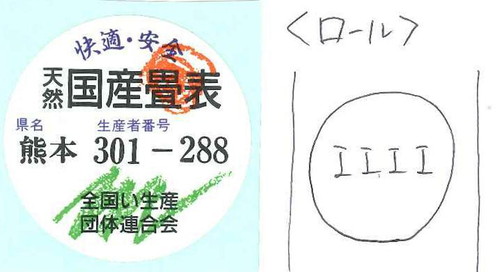 快適・安全
天然 国産畳表
県名 生産者番号
熊本 301-288
全国い生産
団体連合会
<ロール>
エエエエ